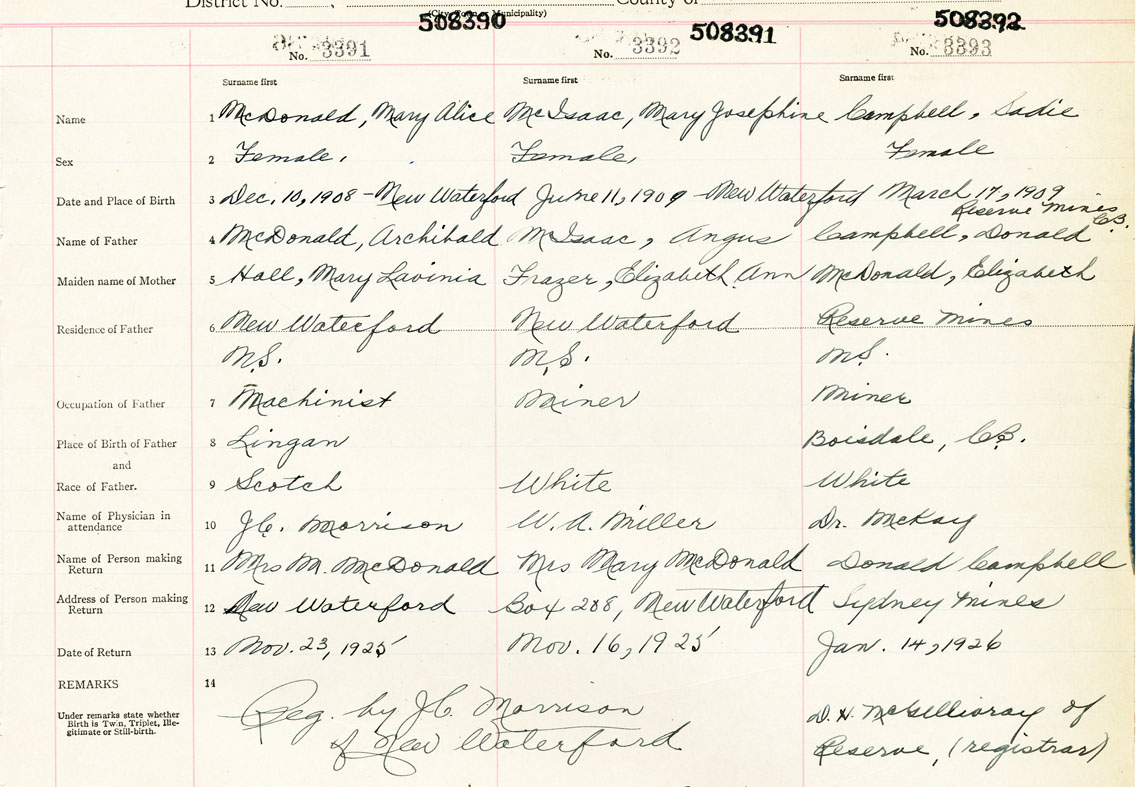 District No. , County of
(City, Town, Municipality)
508390 508391 508392
No. 3391 No. 3392 No. 3393
Surname first Surname first Surname first
Name 1 McDonald, Mary Alice McIsaac, Mary Josephine Campbell, Sadie
Sex 2 Female, Female, Female
Date and Place of Birth 3 Dec. 10, 1908 - New Waterford June 11, 1909 - New Waterford March 17, 1909
Reserve Mines C.B.
Name of Father 4 McDonald, Archibald McIsaac, Angus Campbell, Donald
Maiden name of Mother 5 Hall, Mary Lavinia Frazer, Elizabeth Ann McDonald, Elizabeth
Residence of Father 6 New Waterford New Waterford Reserve Mines
N.S. N.S. N.S.
Occupation of Father 7 Machinist Miner Miner
Place of Birth of Father 8 Lingan Boisdale, C.B.
and
Race of Father. 9 Scotch White White
Name of Physician in attendance 10 J.C. Morrison W. A. Miller Dr. McKay
Name of Person making Return 11 Mrs M. McDonald Mrs Mary McDonald Donald Campbell
Address of Person making Return 12 New Waterford Box 208, New Waterford Sydney Mines
Date of Return 13 Nov. 23, 1925 Nov. 16, 1925 Jan. 14, 1926
REMARKS 14
Under remarks state whether Birth is Twin, Triplet, Ille-
gitimate or Still-birth.
Reg. by J.C. Morrison
of New Waterford
D. H. McGillivray of
Reserve, (registrar)